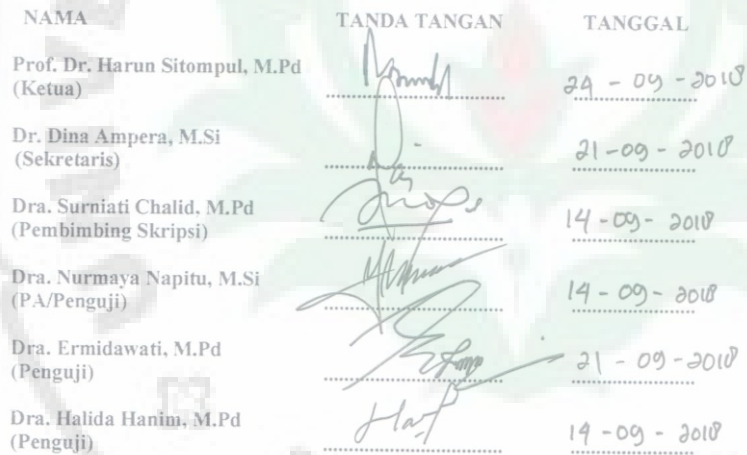 NAMA TANDA TANGAN TANGGAL
Prof. Dr. Harun Sitompul, M.Pd
(Ketua) 24 - 09 - 2018
Dr. Dina Ampera, M.Si
(Sekretaris) 21-09-2018
Dra. Surniati Chalid, M.Pd
(Pembimbing Skripsi) 14-09-2018
Dra. Nurmaya Napitu, M.Si
(PA/Penguji) 14-09-2018
Dra. Ermidawati, M.Pd
(Penguji) 21-09-2018
Dra. Halida Hanim, M.Pd
(Penguji) 14-09-2018